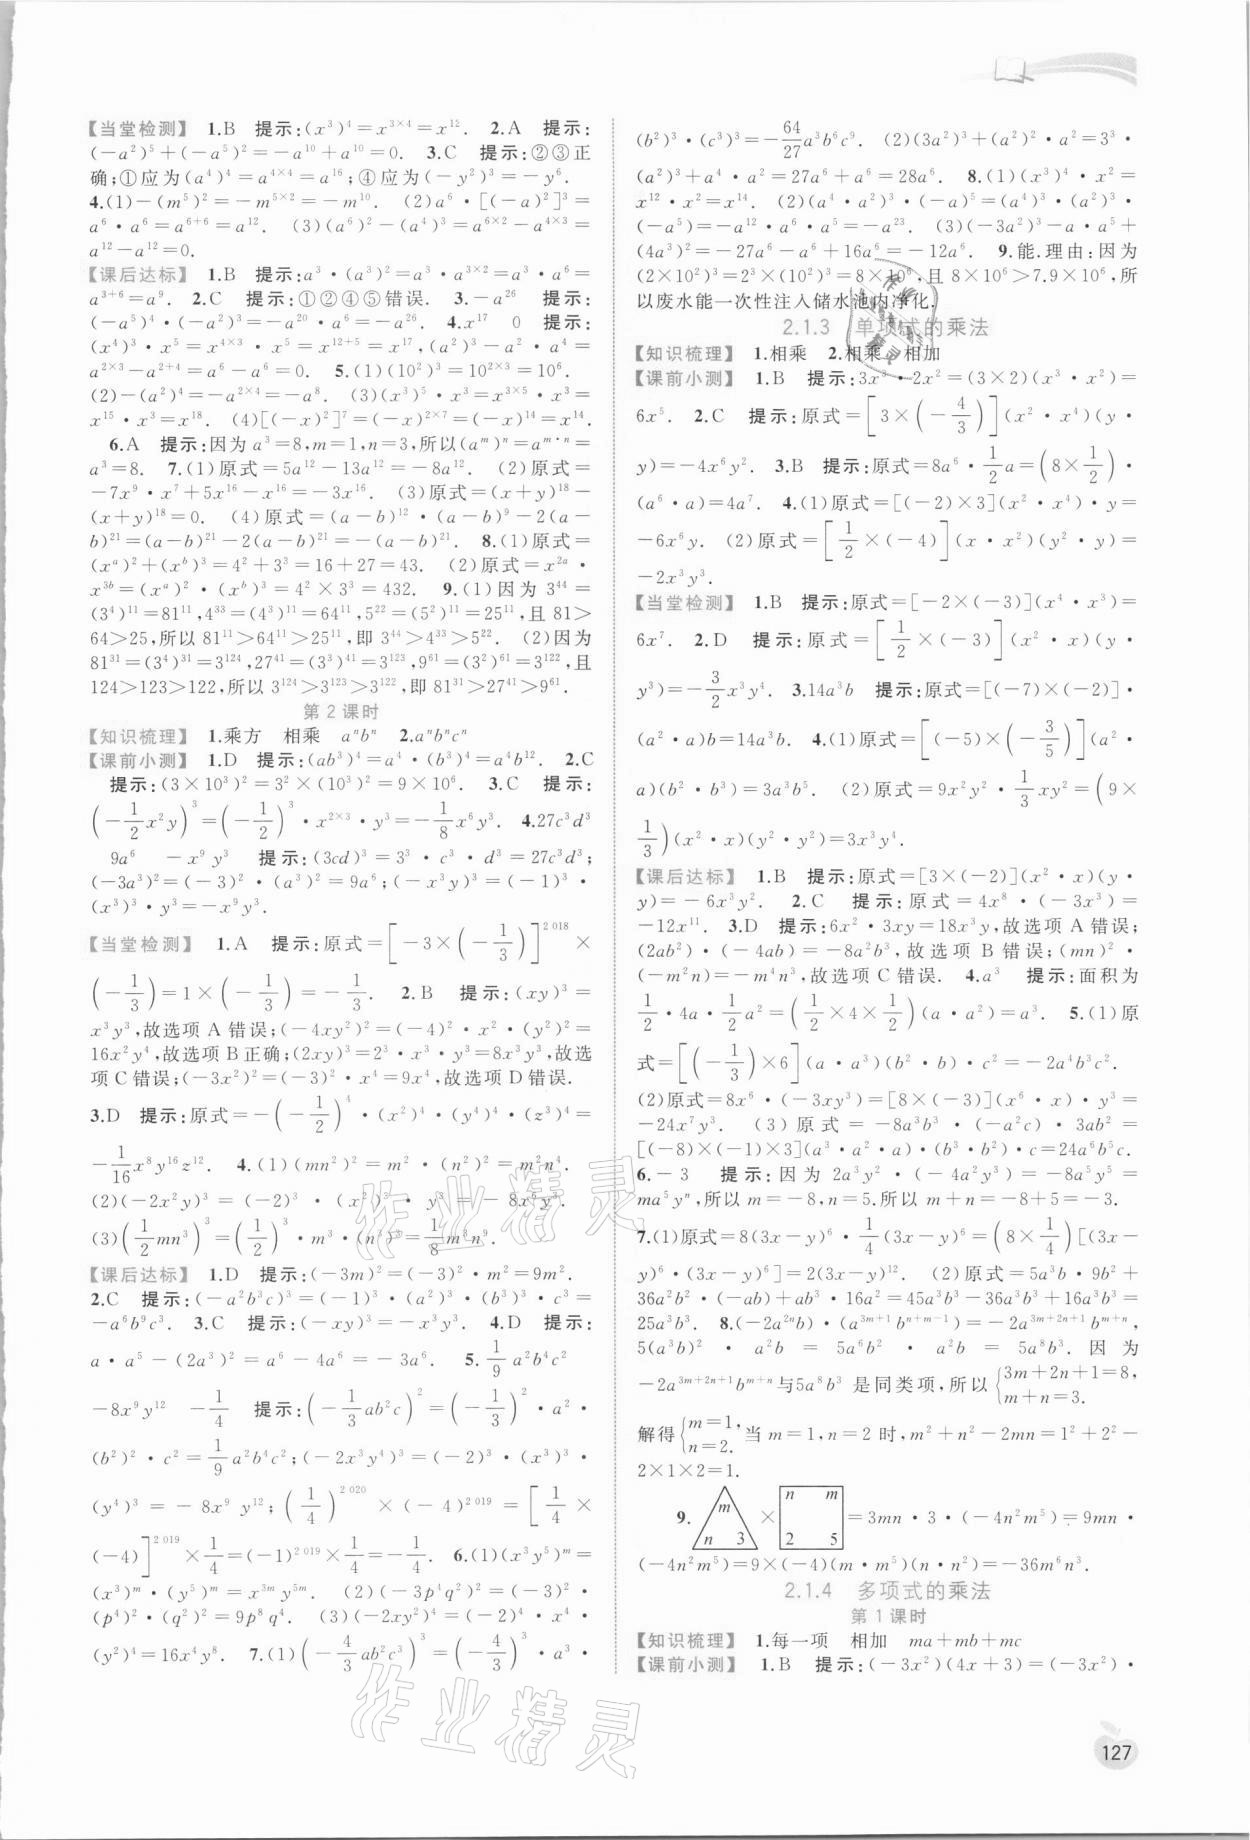 【当堂检测】 1.B 提示:(x³)⁴=x^{3×4}=x¹². 2.A 提示:
(-a²)⁵+(-a⁵)²=-a¹⁰+a¹⁰=0. 3.C 提示:②③正
确;①应为(a⁴)⁴=a^{4×4}=a¹⁶;④应为(-y²)³=-y⁶.
4.(1)-(m⁵)²=-m^{5×2}=-m¹⁰. (2)a⁶·[(-a)²]³=
a⁶·a⁶=a^{6+6}=a¹². (3)(a⁶)²-(a⁴)³=a^{6×2}-a^{4×3}=
a¹²-a¹²=0.
【课后达标】 1.B 提示:a³·(a²)³=a³·a^{3×2}=a³·a⁶=
a^{3+6}=a⁹. 2.C 提示:①②④⑤错误. 3.-a²⁶ 提示:
(-a⁵)⁴·(-a²)³=-a²⁰·a⁶=-a²⁶. 4.x¹⁷ 0 提示:
(x⁴)³·x⁵=x^{4×3}·x⁵=x^{12+5}=x¹⁷,(a²)³-a²·a⁴=
a^{2×3}-a^{2+4}=a⁶-a⁶=0. 5.(1)(10²)³=10^{2×3}=10⁶.
(2)-(a²)⁴=-a^{2×4}=-a⁸. (3)(x³)⁵·x³=x^{3×5}·x³=
x¹⁵·x³=x¹⁸. (4)[(-x)²]⁷=(-x)^{2×7}=(-x)¹⁴=x¹⁴.
6.A 提示:因为a³=8,m=1,n=3,所以(a^m)^n=a^{m·n}=
a³=8. 7.(1)原式=5a¹²-13a¹²=-8a¹². (2)原式=
-7x⁹·x⁷+5x¹⁶-x¹⁶=-3x¹⁶. (3)原式=(x+y)¹⁸-
(x+y)¹⁸=0. (4)原式=(a-b)¹²·(a-b)⁹-2(a-
b)²¹=(a-b)²¹-2(a-b)²¹=-(a-b)²¹. 8.(1)原式=
(x^a)²+(x^b)³=4²+3³=16+27=43. (2)原式=x^{2a}·
x^{3b}=(x^a)²·(x^b)³=4²×3³=432. 9.(1)因为3⁴⁴=
(3⁴)¹¹=81¹¹,4³³=(4³)¹¹=64¹¹,5²²=(5²)¹¹=25¹¹,且81>
64>25,所以81¹¹>64¹¹>25¹¹,即3⁴⁴>4³³>5²². (2)因为
81³¹=(3⁴)³¹=3¹²⁴,27⁴¹=(3³)⁴¹=3¹²³,9⁶¹=(3²)⁶¹=3¹²²,且
124>123>122,所以3¹²⁴>3¹²³>3¹²²,即81³¹>27⁴¹>9⁶¹.
第2课时
【知识梳理】 1.乘方 相乘 aⁿbⁿ 2.aⁿbⁿcⁿ
【课前小测】 1.D 提示:(ab³)⁴=a⁴·(b³)⁴=a⁴b¹². 2.C
提示:(3×10³)²=3²×(10³)²=9×10⁶. 3.C 提示:
(-1/2 x²y)³=(-1/2)³·x^{2×3}·y³=-1/8 x⁶y³. 4.27c³d³
9a⁶ -x⁹y³ 提示:(3cd)³=3³·c³·d³=27c³d³;
(-3a³)²=(-3)²·(a³)²=9a⁶;(-x³y)³=(-1)³·
(x³)³·y³=-x⁹y³.
【当堂检测】 1.A 提示:原式=[-3×(-1/3)]^{2018}×
(-1/3)=1×(-1/3)=-1/3. 2.B 提示:(xy)³=
x³y³,故选项A错误;(-4xy²)²=(-4)²·x²·(y²)²=
16x²y⁴,故选项B正确;(2xy)³=2³·x³·y³=8x³y³,故选
项C错误;(-3x²)²=(-3)²·x⁴=9x⁴,故选项D错误.
3.D 提示:原式=-(-1/2)⁴·(x²)⁴·(y⁴)⁴·(z³)⁴=
-1/16 x⁸y¹⁶z¹². 4.(1)(mn²)²=m²·(n²)²=m²n⁴.
(2)(-2x²y)³=(-2)³·(x²)³·y³=-8x⁶y³.
(3)(1/2 mn³)³=(1/2)³·m³·(n³)³=1/8 m³n⁹.
【课后达标】 1.D 提示:(-3m)²=(-3)²·m²=9m².
2.C 提示:(-a²b³c)³=(-1)³·(a²)³·(b³)³·c³=
-a⁶b⁹c³. 3.C 提示:(-xy)³=-x³y³. 4.D 提示:
a·a⁵-(2a³)²=a⁶-4a⁶=-3a⁶. 5.1/9 a²b⁴c²
-8x⁹y¹² -1/4 提示:(-1/3 ab²c)²=(-1/3)²·a²·
(b²)²·c²=1/9 a²b⁴c²;(-2x³y⁴)³=(-2)³·(x³)³·
(y⁴)³=-8x⁹y¹²;(1/4)^{2020}×(-4)^{2019}=[1/4×
(-4)]^{2019}×1/4=(-1)^{2019}×1/4=-1/4. 6.(1)(x³y⁵)^m=
(x³)^m·(y⁵)^m=x^{3m}y^{5m}. (2)(-3p⁴q²)²=(-3)²·
(p⁴)²·(q²)²=9p⁸q⁴. (3)(-2xy²)⁴=(-2)⁴·x⁴·
(y²)⁴=16x⁴y⁸. 7.(1)(-4/3 ab²c³)³=(-4/3)³·a³·
(b²)³·(c³)³=-64/27 a³b⁶c⁹. (2)(3a²)³+(a²)²·a²=3³·
(a²)³+a⁴·a²=27a⁶+a⁶=28a⁶. 8.(1)(x³)⁴·x²=
x¹²·x²=x¹⁴. (2)(a⁴·a²)³·(-a)⁵=(a⁴)³·(a²)³·
(-a⁵)=-a¹²·a⁶·a⁵=-a²³. (3)(-3a²)³-a·a⁵+
(4a³)²=-27a⁶-a⁶+16a⁶=-12a⁶. 9.能.理由:因为
(2×10²)³=2³×(10²)³=8×10⁶,且8×10⁶>7.9×10⁶,所
以废水能一次性注入储水池内净化.
2.1.3 单项式的乘法
【知识梳理】 1.相乘 2.相乘 相加
【课前小测】 1.B 提示:3x³·2x²=(3×2)(x³·x²)=
6x⁵. 2.C 提示:原式=[3×(-4/3)](x²·x⁴)(y·
y)=-4x⁶y². 3.B 提示:原式=8a⁶·1/2 a=(8×1/2)·
(a⁶·a)=4a⁷. 4.(1)原式=[(-2)×3](x²·x⁴)·y=
-6x⁶y. (2)原式=[1/2×(-4)](x·x²)(y²·y)=
-2x³y³.
【当堂检测】 1.B 提示:原式=[-2×(-3)](x⁴·x³)=
6x⁷. 2.D 提示:原式=[1/2×(-3)](x²·x)(y·
y³)=-3/2 x³y⁴. 3.14a³b 提示:原式=[(-7)×(-2)]·
(a²·a)b=14a³b. 4.(1)原式=[(-5)×(-3/5)](a²·
a)(b²·b³)=3a³b⁵. (2)原式=9x²y²·1/3 xy²=(9×
1/3)(x²·x)(y²·y²)=3x³y⁴.
【课后达标】 1.B 提示:原式=[3×(-2)](x²·x)(y·
y)=-6x³y². 2.C 提示:原式=4x⁸·(-3x³)=
-12x¹¹. 3.D 提示:6x²·3xy=18x³y,故选项A错误;
(2ab²)·(-4ab)=-8a²b³,故选项B错误;(mn)²·
(-m²n)=-m⁴n³,故选项C错误. 4.a³ 提示:面积为
1/2·4a·1/2 a²=(1/2×4×1/2)(a·a²)=a³. 5.(1)原
式=[(-1/3)×6](a·a³)(b²·b)·c²=-2a⁴b³c².
(2)原式=8x⁶·(-3xy³)=[8×(-3)](x⁶·x)·y³=
-24x⁷y³. (3)原式=-8a³b³·(-a²c)·3ab²=
[(-8)×(-1)×3](a³·a²·a)·(b³·b²)·c=24a⁶b⁵c.
6.-3 提示:因为2a³y²·(-4a²y³)=-8a⁵y⁵=
ma⁵yⁿ,所以m=-8,n=5.所以m+n=-8+5=-3.
7.(1)原式=8(3x-y)⁶·1/4(3x-y)⁶=(8×1/4)[(3x-
y)⁶·(3x-y)⁶]=2(3x-y)¹². (2)原式=5a³b·9b²+
36a²b²·(-ab)+ab³·16a²=45a³b³-36a³b³+16a³b³=
25a³b³. 8.(-2a^{2n}b)·(a^{3m+1}b^{n+m-1})=-2a^{3m+2n+1}b^{m+n},
5(a³b)²·a²b=5a⁶b²·a²b=5a⁸b³.因为
-2a^{3m+2n+1}b^{m+n}与5a⁸b³是同类项,所以{3m+2n+1=8, m+n=3.
解得{m=1, n=2. 当m=1,n=2时,m²+n²-2mn=1²+2²-
2×1×2=1.
9. m n 3 × n m 2 5 =3mn·3·(-4n²m⁵)=9mn·
(-4n²m⁵)=9×(-4)(m·m⁵)(n·n²)=-36m⁶n³.
2.1.4 多项式的乘法
第1课时
【知识梳理】 1.每一项 相加 ma+mb+mc
【课前小测】 1.B 提示:(-3x²)(4x+3)=(-3x²)·
127
作业精灵
作业精灵